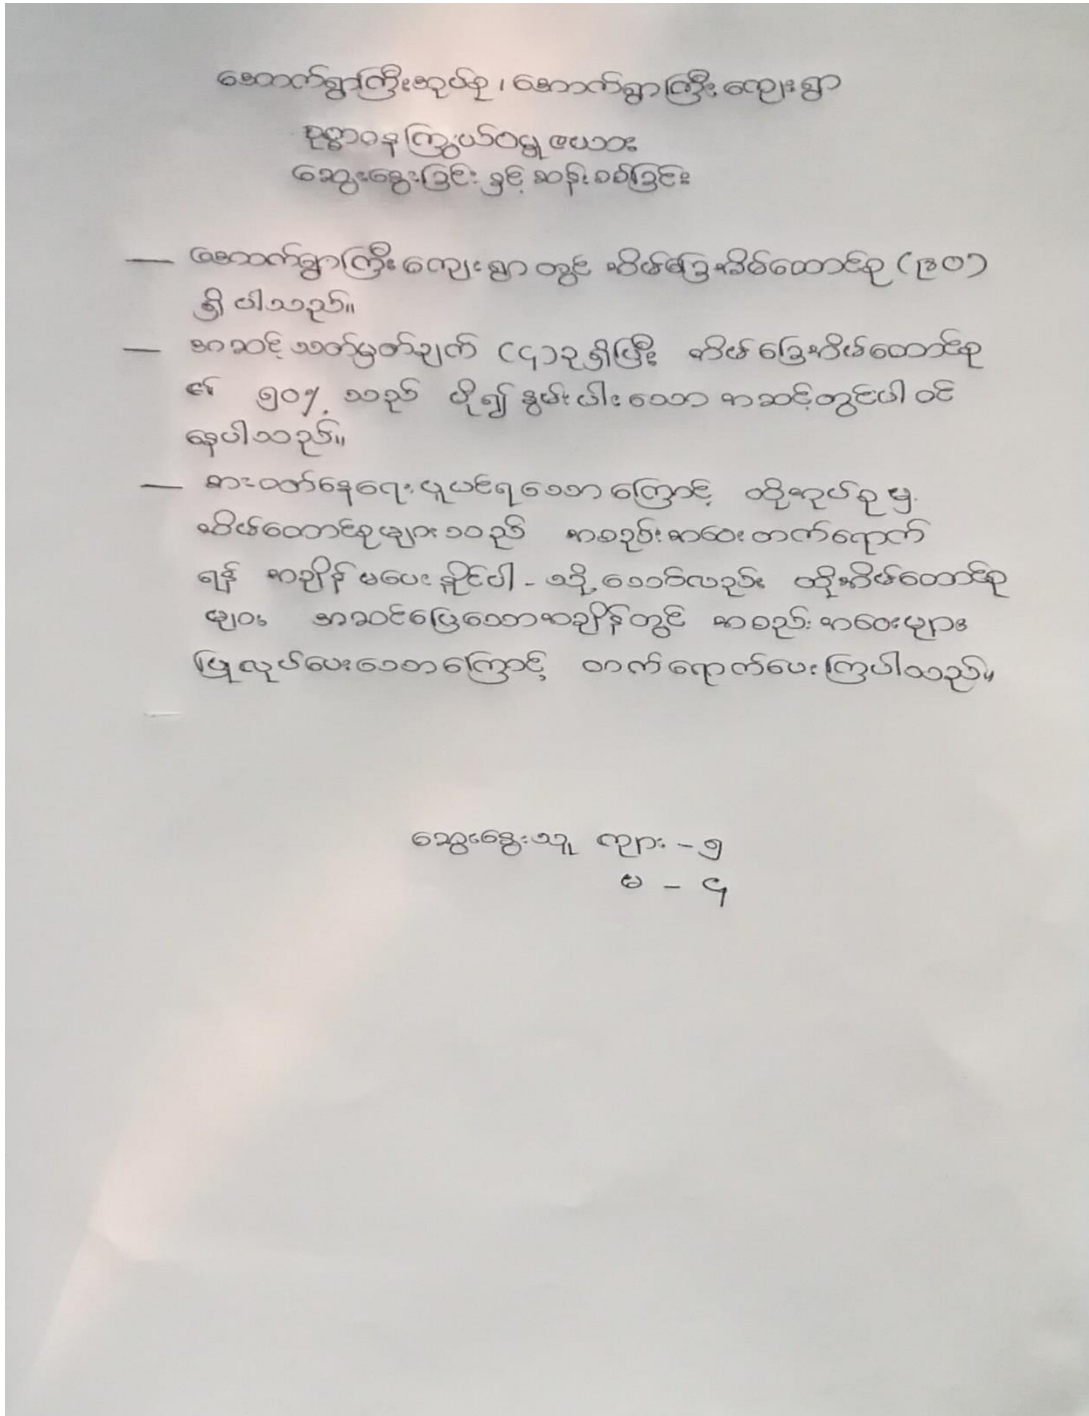 အောက်ရွာကြီးအုပ်စု၊ အောက်ရွာကြီးကျေးရွာ
ဥစ္စာဓနကြွယ်ဝမှုဇယား
ဆွေးနွေးခြင်းနှင့် ဆန်းစစ်ခြင်း
— အောက်ရွာကြီးကျေးရွာတွင် အိမ်ခြေအိမ်ထောင်စု (၃၀)
ရှိပါသည်။
— အဆင့်သတ်မှတ်ချက် (၄)ခုရှိပြီး အိမ်ခြေအိမ်ထောင်စု
၏ ၅၀% သည် ပို၍နွမ်းပါးသော အဆင့်တွင်ပါဝင်
နေပါသည်။
— စားဝတ်နေရေးပူပင်ရသောကြောင့် ထိုအုပ်စုမှ
အိမ်ထောင်စုများသည် အစည်းအဝေးတက်ရောက်
ရန် အချိန်မပေးနိုင်ပါ - သို့သော်လည်း ထိုအိမ်ထောင်စု
များ အဆင်ပြေသောအချိန်တွင် အစည်းအဝေးများ
ပြုလုပ်ပေးသောကြောင့် တက်ရောက်ပေးကြပါသည်။
ဆွေးနွေးသူ ကျား - ၅
မ - ၄